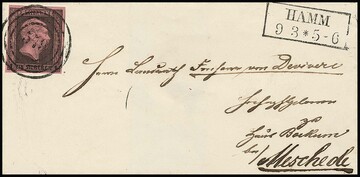 HAMM
9 3 * 5-6
Herrn Landrath Freiherr von Devivere
Hochwohlgeboren
zu
Haus Bockum
bei
Meschede